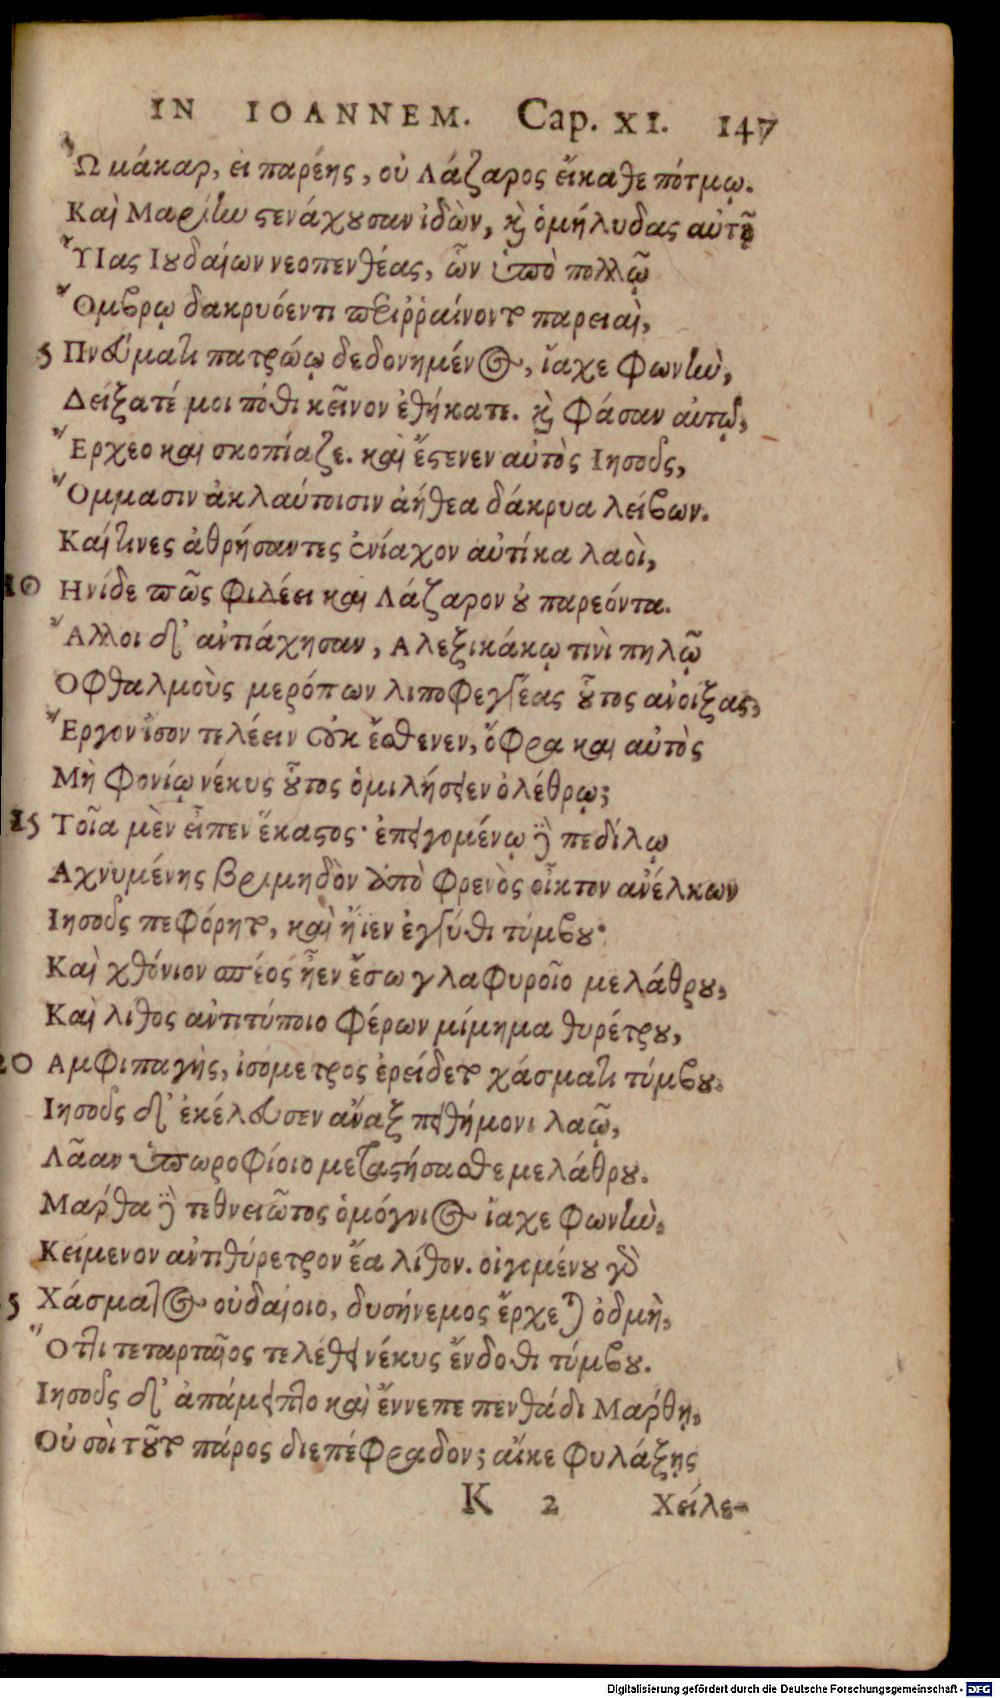 IN IOANNEM. Cap. XI. 147
Ὦ μάκαρ, εἰ παρέης, οὐ Λάζαρος εἴκαθε πότμῳ.
Καὶ Μαρίην στενάχουσαν ἰδὼν, καὶ ὁμήλυδας αὐτῇ
Ὑῖας Ιουδαίων νεοπενθέας, ὧν ὑπὸ πολλῷ
Ὄμβρῳ δακρυόεντι περιῤῥαίνοντο παρειαὶ,
5 Πνεύματι πατρώῳ δεδονημένος, ἴαχε φωνὴν,
Δείξατέ μοι πόθι κεῖνον ἐθήκατε. καὶ φάσαν αὐτῷ,
Ἔρχεο καὶ σκοπίαζε. καὶ ἔστενεν αὐτὸς Ιησοῦς,
Ὄμμασιν ἀκλαύτοισιν ἀήθεα δάκρυα λείβων.
Καί τινες ἀθρήσαντες ἐνίαχον αὐτίκα λαοὶ,
10 Ηνίδε πῶς φιλέει καὶ Λάζαρον οὐ παρεόντα.
Ἄλλοι δ' ἀντιάχησαν, Αλεξικάκῳ τινὶ πηλῷ
Οφθαλμοὺς μερόπων λιποφεγγέας οὗτος ἀνοίξας,
Ἔργον ἴσον τελέειν οὐκ ἔσθενεν, ὄφρα καὶ αὐτὸς
Μὴ φονίῳ νέκυς οὗτος ὁμιλήσειεν ὀλέθρῳ;
15 Τοῖα μὲν εἶπεν ἕκαστος· ἐπειγομένῳ δὲ πεδίλῳ
Αχνυμένης βριμηδὸν ἀπὸ φρενὸς οἶκτον ἀνέλκων
Ιησοῦς πεφόρητο, καὶ ἤιεν ἐγγύθι τύμβου·
Καὶ χθόνιον σπέος ἦεν ἔσω γλαφυροῖο μελάθρου,
Καὶ λίθος ἀντιτύποιο φέρων μίμημα θυρέτρου,
20 Αμφιπαγὴς, ἰσόμετρος ἐρείδετο χάσματι τύμβου.
Ιησοῦς δ' ἐκέλευσεν ἄναξ πειθήμονι λαῷ,
Λᾶαν ὑπωροφίοιο μεταστήσασθε μελάθρου.
Μάρθα δὲ τεθνειῶτος ὁμόγνιος ἴαχε φωνὴν,
Κείμενον ἀντιθύρετρον ἔα λίθον. οἰγομένου γὰρ
5 Χάσματος οὐδαίοιο, δυσήνεμος ἔρχεται ὀδμὴ,
Ὅττι τεταρταῖος τελέθει νέκυς ἔνδοθι τύμβου.
Ιησοῦς δ' ἀπάμειπτο καὶ ἔννεπε πενθάδι Μάρθῃ,
Οὐ σοὶ τοῦτο πάρος διεπέφραδον; αἴκε φυλάξῃς
K 2 Χείλε-
Digitalisierung gefördert durch die Deutsche Forschungsgemeinschaft - DFG